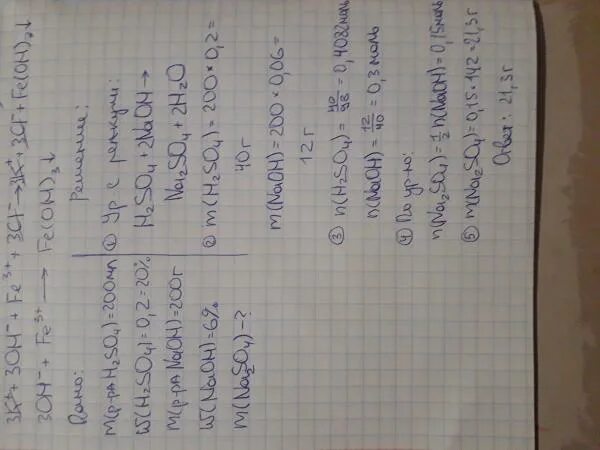 3K⁺ + 3OH⁻ + Fe³⁺ + 3Cl⁻ → 3K⁺ + 3Cl⁻ + Fe(OH)₃↓
3OH⁻ + Fe³⁺ → Fe(OH)₃↓
Дано:
m(р-ра H₂SO₄) = 200мл
W(H₂SO₄) = 0,2 = 20%
m(р-ра NaOH) = 200г
W(NaOH) = 6%
m(Na₂SO₄) - ?
Решение:
① Ур с реакции:
H₂SO₄ + 2NaOH →
Na₂SO₄ + 2H₂O
② m(H₂SO₄) = 200 × 0,2 =
40г
m(NaOH) = 200 × 0,06 =
12 г
③ n(H₂SO₄) = 40/98 = 0,4082 моль
n(NaOH) = 12/40 = 0,3 моль
④ По ур-но:
n(Na₂SO₄) = 1/2 n(NaOH) = 0,15 моль
⑤ m(Na₂SO₄) = 0,15 × 142 = 21,3 г
Ответ: 21,3 г